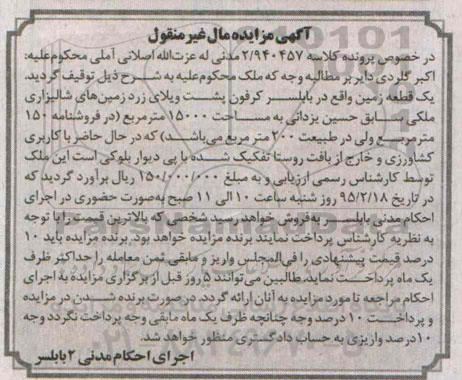 آگهی مزایده مال غیر منقول
در خصوص پرونده کلاسه ۲/۹۴۰۴۵۷ مدنی له عزت‌الله اصلانی آملی محکوم‌علیه:
اکبر گلردی دایر بر مطالبه وجه که ملک محکوم‌علیه به شرح ذیل توقیف گردید.
یک قطعه زمین واقع در بابلسر کرفون پشت ویلای زرد زمین‌های شالیزاری
ملکی سابق حسین یزدانی به مساحت ۱۵۰۰۰ مترمربع (در فروشنامه ۱۵۰
متر مربع ولی در طبیعت ۲۰۰ متر مربع می‌باشد) که در حال حاضر با کاربری
کشاورزی و خارج از بافت روستا تفکیک شده با پی دیوار بلوکی است این ملک
توسط کارشناس رسمی ارزیابی و به مبلغ ۱۵۰/۰۰۰/۰۰۰ ریال برآورد گردید که
در تاریخ ۹۵/۲/۱۸ روز شنبه ساعت ۱۰ الی ۱۱ صبح به‌صورت حضوری در اجرای
احکام مدنی بابلسر به‌فروش خواهد رسید شخصی که بالاترین قیمت را با توجه
به نظریه کارشناس پرداخت نمایند برنده مزایده خواهد بود. برنده مزایده باید ۱۰
درصد قیمت پیشنهادی را فی‌المجلس واریز و مابقی ثمن معامله را حداکثر ظرف
یک ماه پرداخت نماید. طالبین می‌توانند ۵ روز قبل از برگزاری مزایده به اجرای
احکام مراجعه تا مورد مزایده به آنان ارائه گردد. در صورت برنده شدن در مزایده
و پرداخت ۱۰ درصد وجه چنانچه ظرف یک ماه مابقی وجه پرداخت نگردد وجه
۱۰ درصد واریزی به حساب دادگستری منظور خواهد شد.
اجرای احکام مدنی ۲ بابلسر
ParsNamadData